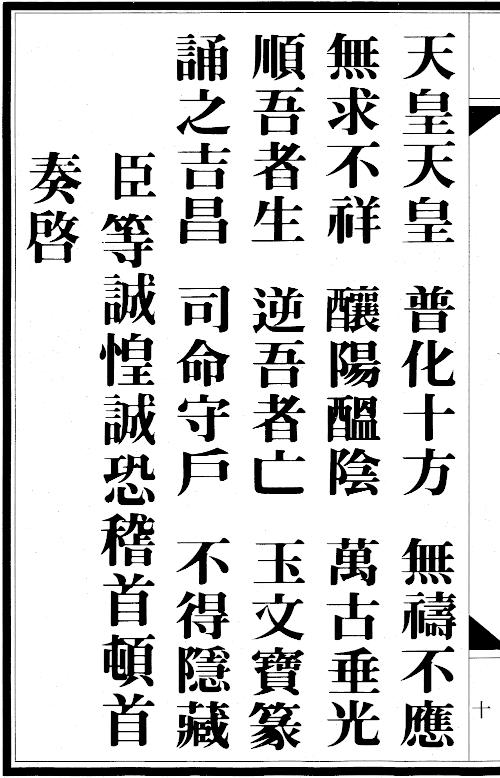 天皇天皇　普化十方　無禱不應
無求不祥　釀陽醞陰　萬古垂光
順吾者生　逆吾者亡　玉文寶篆
誦之吉昌　司命守戶　不得隱藏
臣等誠惶誠恐稽首頓首
奏啓
十